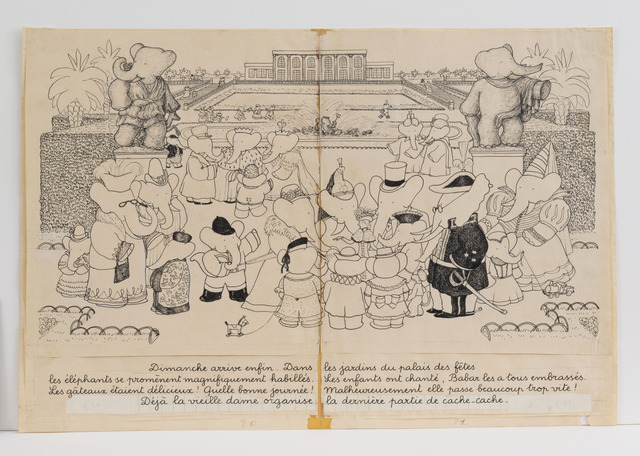 Dimanche arrive enfin. Dans les jardins du palais des fêtes
les éléphants se promènent magnifiquement habillés. Les enfants ont chanté, Babar les a tous embrassés.
Les gâteaux étaient délicieux! Quelle bonne journée! Malheureusement elle passe beaucoup trop vite!
Déjà la vieille dame organise la dernière partie de cache-cache.